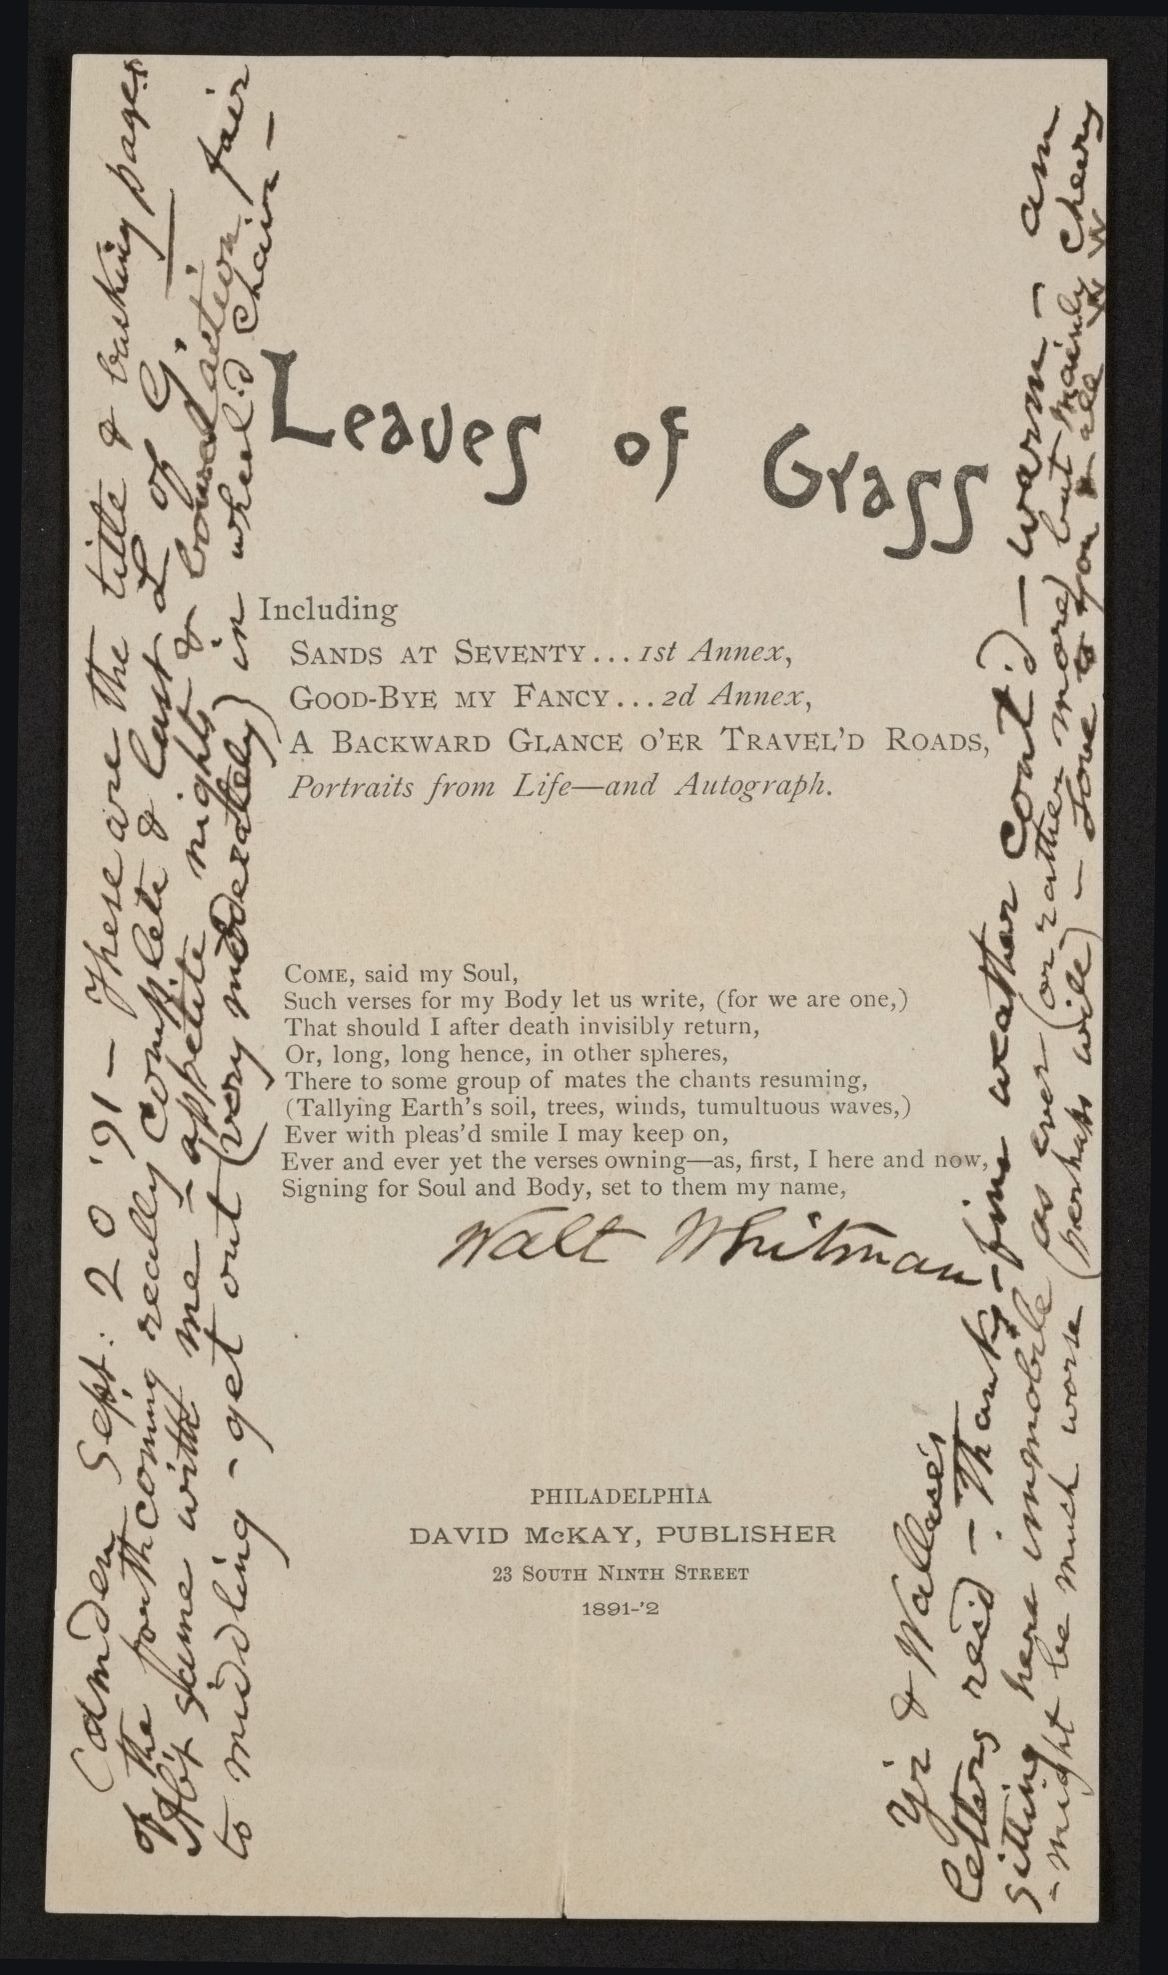 Camden Sept: 20 '91 — These are the title & backing pages
of the forthcoming really complete & last L of G.
Ab't same with me — appetite nights & bowel action fair
to middling - get out (very moderately) in wheel'd chair —
Leaves of Grass
Including
SANDS AT SEVENTY...1st Annex,
GOOD-BYE MY FANCY...2d Annex,
A BACKWARD GLANCE O'ER TRAVEL'D ROADS,
Portraits from Life—and Autograph.
COME, said my Soul,
Such verses for my Body let us write, (for we are one,)
That should I after death invisibly return,
Or, long, long hence, in other spheres,
There to some group of mates the chants resuming,
(Tallying Earth's soil, trees, winds, tumultuous waves,)
Ever with pleas'd smile I may keep on,
Ever and ever yet the verses owning—as, first, I here and now,
Signing for Soul and Body, set to them my name,
Walt Whitman
PHILADELPHIA
DAVID McKAY, PUBLISHER
23 SOUTH NINTH STREET
1891-'2
Y'r & Wallace's
letters rec'd — Thanks - fine weather cont'd — warm — am
sitting here immobile as ever (or rather more) but mainly cheery
- might be much worse (perhaps will) — Love to you & all W W